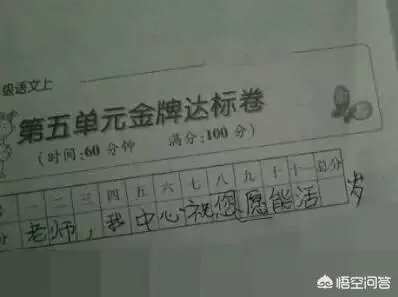 级语文上
第五单元金牌达标卷
(时间:60分钟 满分:100分)
一 二 三 四 五 六 七 八 九 十 十一 总分
分 老师,我中心祝您愿能活 岁
悟空问答